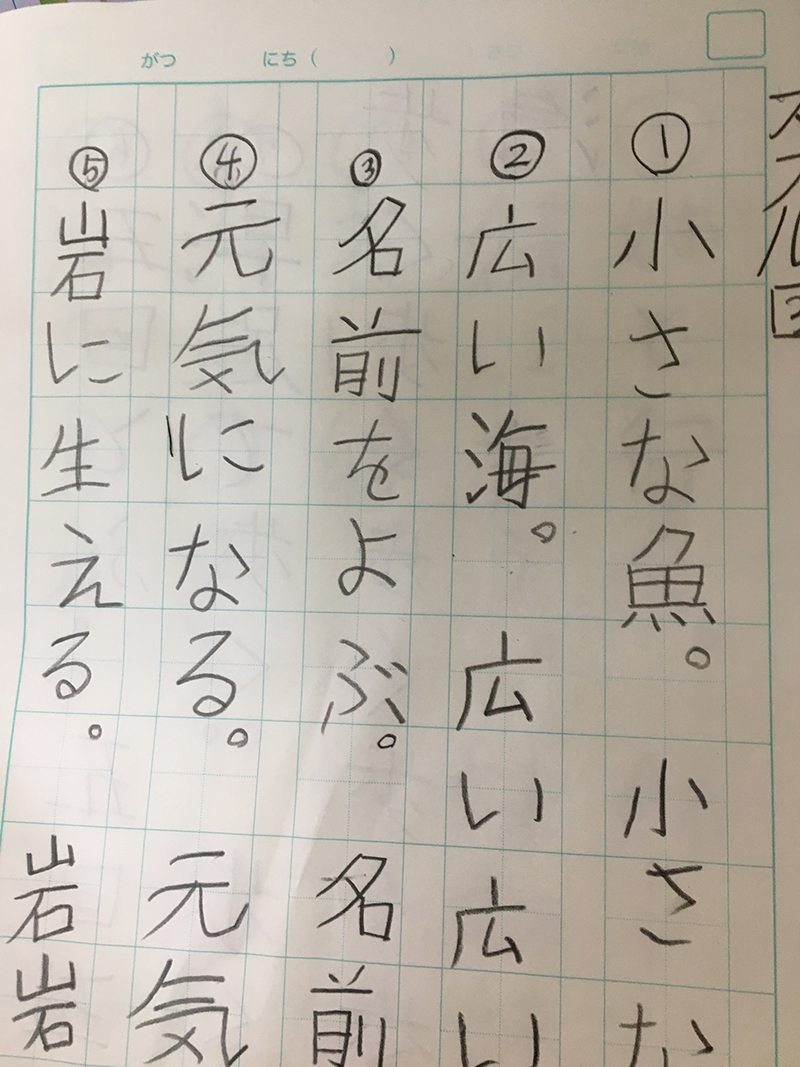 がつ にち ( )
①小さな魚。 小さな
②広い海。 広い広い
③名前をよぶ。 名前
④元気になる。 元気
⑤岩に生える。 岩岩